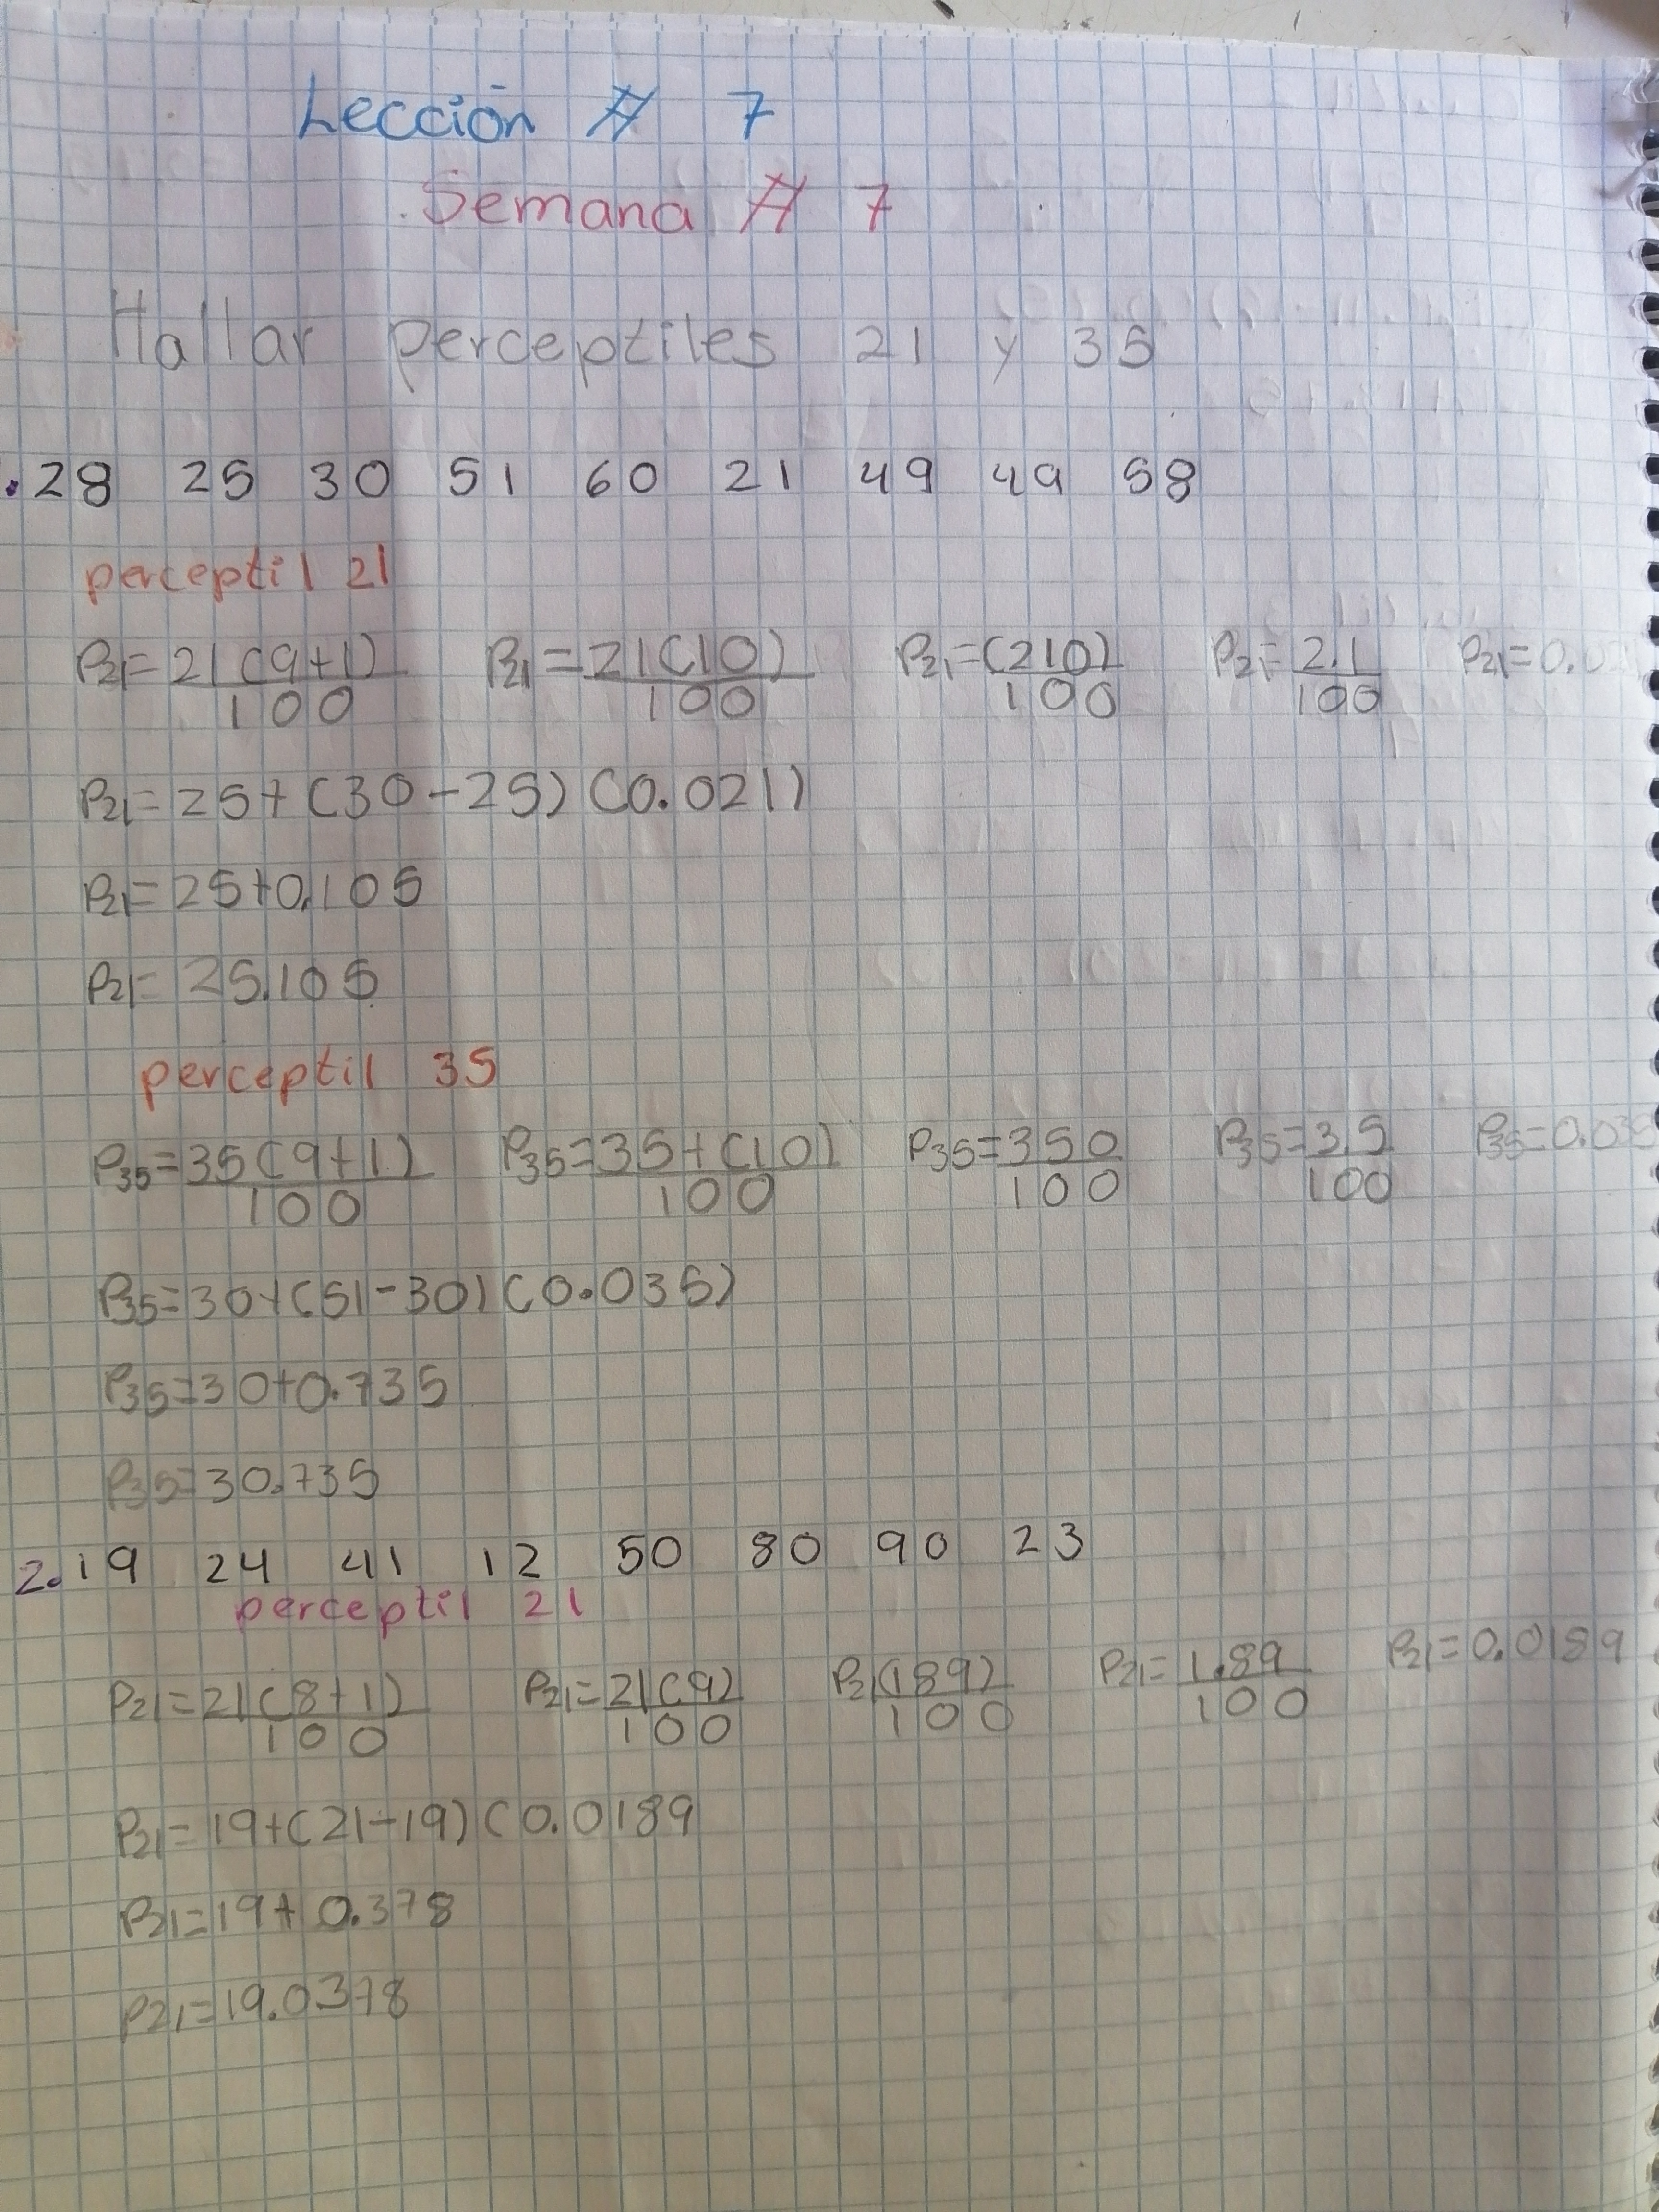 Lección # 7
Semana # 7
Hallar perceptiles 21 y 35
.28 25 30 51 60 21 49 49 58
perceptil 21
P21=21(9+1)/100 P21=21(10)/100 P21=(210)/100 P21=2.1/100 P21=0.02
P21=25+(30-25)(0.021)
P21=25+0.105
P21=25.105
perceptil 35
P35=35(9+1)/100 P35=35+(10)/100 P35=350/100 P35=3.5/100 P35=0.035
P35=30+(51-30)(0.035)
P35=30+0.735
P35=30.735
2.19 24 41 12 50 80 90 23
perceptil 21
P21=21(8+1)/100 P21=21(9)/100 P21(189)/100 P21=1.89/100 P21=0.0189
P21=19+(21-19)(0.0189
P21=19+0.378
P21=19.0378